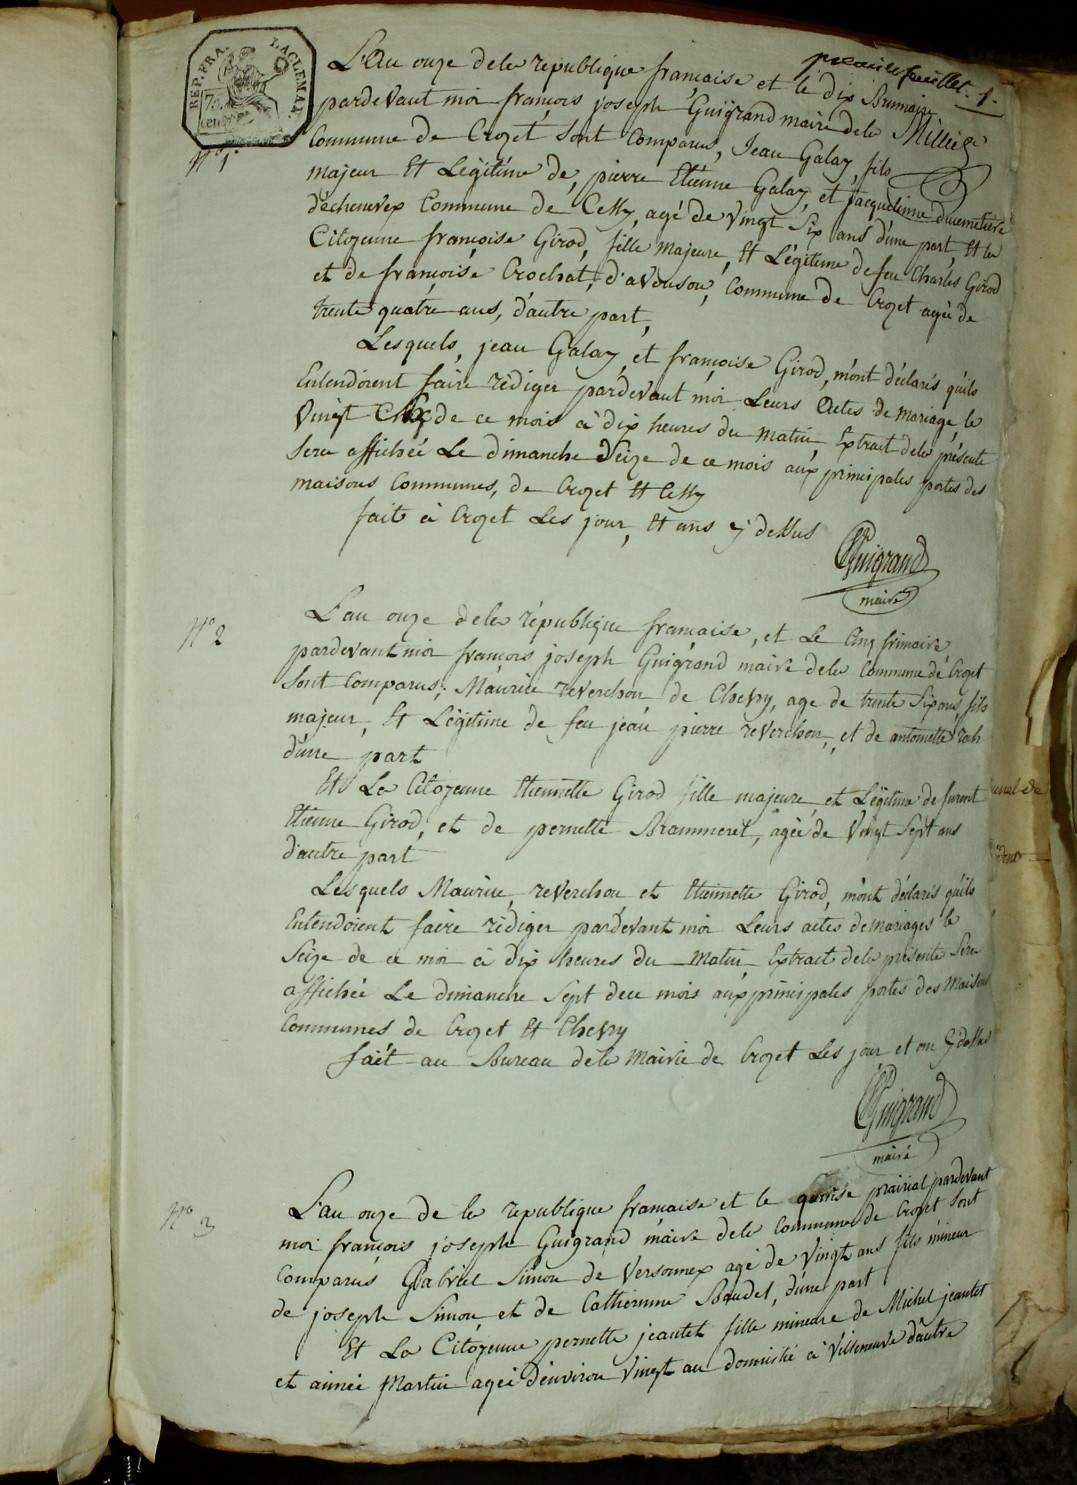 REP. FRA.
75
premier feuillet. 1.
L'au onze dela republique francaise et le dix Brumaire
pardevant moi françois joseph Guigrand maire dela
N° 1
Commune de Crozet sont Comparus, Jean Galay, fils
majeur Et Legitime de pierre Etienne Galay, et jacquelinne ducemetiere
d'echenevex Commune de Cessy, agé de Vingt Six ans d'une part, Et la
Citoyenne françoise Girod, fille majeure, Et Légitime de feu Charles Girod
et de françoise Crochat, d'avouson, Commune de Crozet agée de
trente quatre ans, d'autre part,
Lesquels, jean Galay, et françoise Girod, m'ont déclarés qu'ils
Entendoient faire rédiger pardevant moi Leurs Actes de mariage, le
Vingt de ce mois à dix heures du matin, Extrait dela présente
Sera affichée Le dimanche Seize de ce mois aux principales portes des
maisons Communes, de Crozet Et Cessy
fait à Crozet Les jour, Et ans y dessus
Guigrand
maire
N° 2
L'au onze dela république francaise, et Le Cinq frimaire
pardevant moi françois joseph Guigrand maire dela Commune de Crozet
Sont Comparus; Maurice reverchon de Chevry, age de trente Six ans, fils
majeur, Et Légitime de feu jean pierre reverchon, et de antoinette
d'une part
Et La Citoyenne Etiennette Girod fille majeure, et Légitime de furent
Etienne Girod, et de pernette Brammeret, agée de Vingt Sept ans
d'autre part
Lesquels Maurice, reverchon et Etiennette Girod, m'ont déclarés qu'ils
Entendoient faire rédiger pardevant moi Leurs actes de mariages le
Seize de ce moi à dix heures du matin, Extrait dela présente Sera
affichée Le dimanche Sept dece mois aux principales portes des Maisons
Communes de Crozet Et Chevry
fait au Bureau dela Mairie de Crozet Les jour et an y dessus
Guigrand
maire
N° 3
L'au onze de la republique francaise et le prairial pardevant
moi françois joseph Guigrand maire dela Commune de Crozet Sont
Comparus Gabriel Simon de Versonnex agé de Vingt ans fils mineur
de joseph Simon, et de Catherinne Baudet, d'une part
Et La Citoyenne pernette jeantet fille mineure de Michel jeantet
et aimée Martin agée d'environ Vingt an domicilié à Villeneuve d'autre